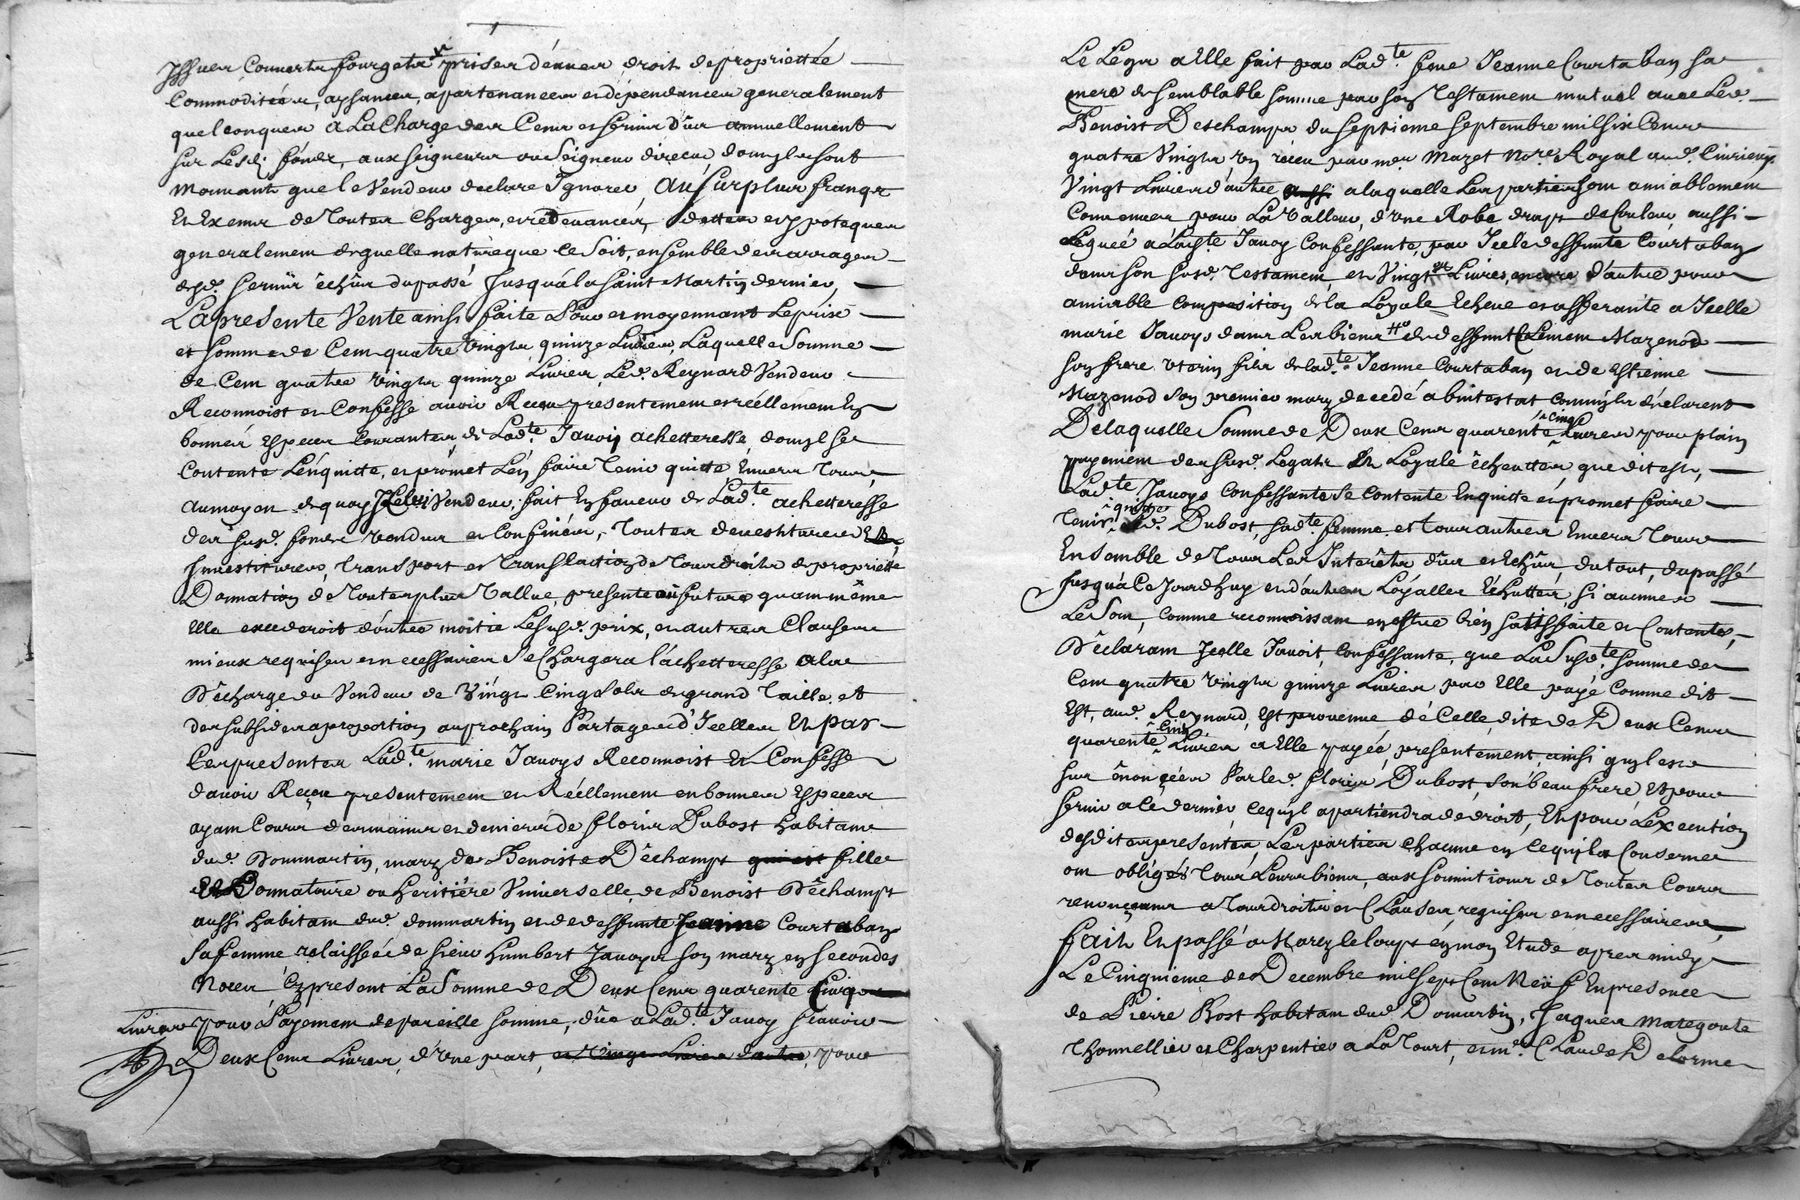 Issues Couverts fourgets prises d'eaues droit de propriettée
Commoditées, aysances, apartenances et dépendances generalement
quelconques A La Charge des Cens et servis dûs annuellement
sur Lesd. fonds, aux seigneurs ou Seigneur direct dont yls sont
mouvants que le Vendeur declare Ignorer Au surplus francqs
Et Exemts de Toutes Charges, et redevances, dettes et ypoteques
generalement de quelle nature que Ce Soit, ensemble des arrages
desd. servis êchûs du passé Jusqu'à la saint Martin dernier,
La presente Vente ainsi faite Pour et moyennant Le prix
et somme de Cent quatre vingts quinze Livres, Laquelle Somme
de Cent quatre vingts quinze Livres, Led. Reynard Vendeur
Reconnoist et Confesse avoir Reçeu presentement et réellement En
bonnes Especes Courantes de Lad.te Jauoy achetteresse, dont yl se
Contente L'enquitte, et promet L'en faire Tenir quitte Envers Tous,
au moyen de quoy Icelui Vendeur, fait En faveur de Lad.te achetteresse
des susd. fonds vendus et Confinés, Toutes devestitures Et
Investitures, Transport et Translation de Tous droits de proprietté
Donnation de Toute plus Vallue, presente ou future quammême
Elle excederoit d'outre moitié Le susd. prix, et autres Clauses
mieux requises et necessaires Se Chargera l'achetteresse a la
Décharge du Vendeur de Vingt Cinq Sols de grand Taille et
des subsides a proportion au prochain Partage d'Icelles Et par
Ces presentes Lad.te marie Jauoys Reconnoist Et Confesse
d'avoir Reçeu presentement et Réellement en bonnes Especes
ayant Cours des mains et deniers de floris Dubost habitant
dud. Dommartin, mary de Benoiste Dêchamps qui est fille
Et Donnataire ou heritiére Universelle, de Benoist Dêchamps
aussi habitant dud. dommartin et de deffunte Jeanne Courtabau
sa femme relaissée de sieur humbert Jauoys son mary en secondes
Noces Et present La Somme de Deux Cens quarente Cinq
Livres pour Payement de pareille somme, dûe a Lad.te Jauoy sçavoir
Deux Cens Livres, d'une part, et Vingt Livres d'autre, pour
Le Legs a Elle fait par Lad.te feue Jeanne Courtabau sa
mere de semblable somme par son Testament mutuel avec Led.
Benoist Deschamps du septieme septembre mil six Cens
quatre Vingts un reçeu par moy Mazet No.re Royal aud. Civrieux
Vingt Livres d'autre aussi a laquelle Les parties sont amiablement
Convenues pour La Valleur, d'une Robe drapt de Couleur aussi
Leguée a Lad.te Jauoy Confessante, par Icele deffunte Courtabau
dans son susd. Testament, et Vingt Livres, encore d'autre pour
amiable Composition de la Loyale Echeue et afferante a Icelle
marie Jauoys dans Les biens de deffunt Clement Mazenod
son frere uterin fils de lad.te Jeanne Courtabau et de Estienne
Mazenod son premier mary decedé abintestat Comm'yls déclarent
De laquelle Somme de Deux Cens quarente Cinq Livres pour plain
payement des susd. Legats Et Loyale êcheutte, que dit est,
Lad.te Jauoys Confessante Se Contente En quitte et promet faire
Tenir quittes Led. Dubost, sad.te femme, et tous autres Envers Tous
Ensemble de Tous Les Interêts dûs et Echûs du tout, du passé
Jusqu'à Ce Jourdhuy et d'autres Loyalles Echuttes, si aucunes
Le Sont, Comme reconnoissant en estre bien sattisfaite et Contente,
Dêclarant Icelle Jauoit, Confessante, que La Susd.te somme de
Cent quatre vingts quinze Livres par Elle payé Comme dit
Est, aud. Reynard, Est provenue, de Celle, dite de Deux Cens
quarente Cinq Livres a Elle payée presentement, ainsi qu'yl est
sur ênonçées Par led. floris Dubost, son beau frere, Et pour
servir a Ce dernier, Ce qu'yl apartiendra de droit, Et pour L'execution
desdites presentes Les parties Chacune en Ce qu'yls Conserne
ont obligés Tous Leurs biens, aux soumitions de Toutes Cours
renonçeants a Tous droits et Clauses requises et necessaires,
fait Et passé a Marcy le loup en mon Etude apres midy
Le Cinquième de Decembre mil sept Cent Neuf En presence
de Pierre Rost habitant dud. Domartin, Jaques Mategoute
Thonnellier et Charpentier a La Tourt, et m.e Claude Delorme